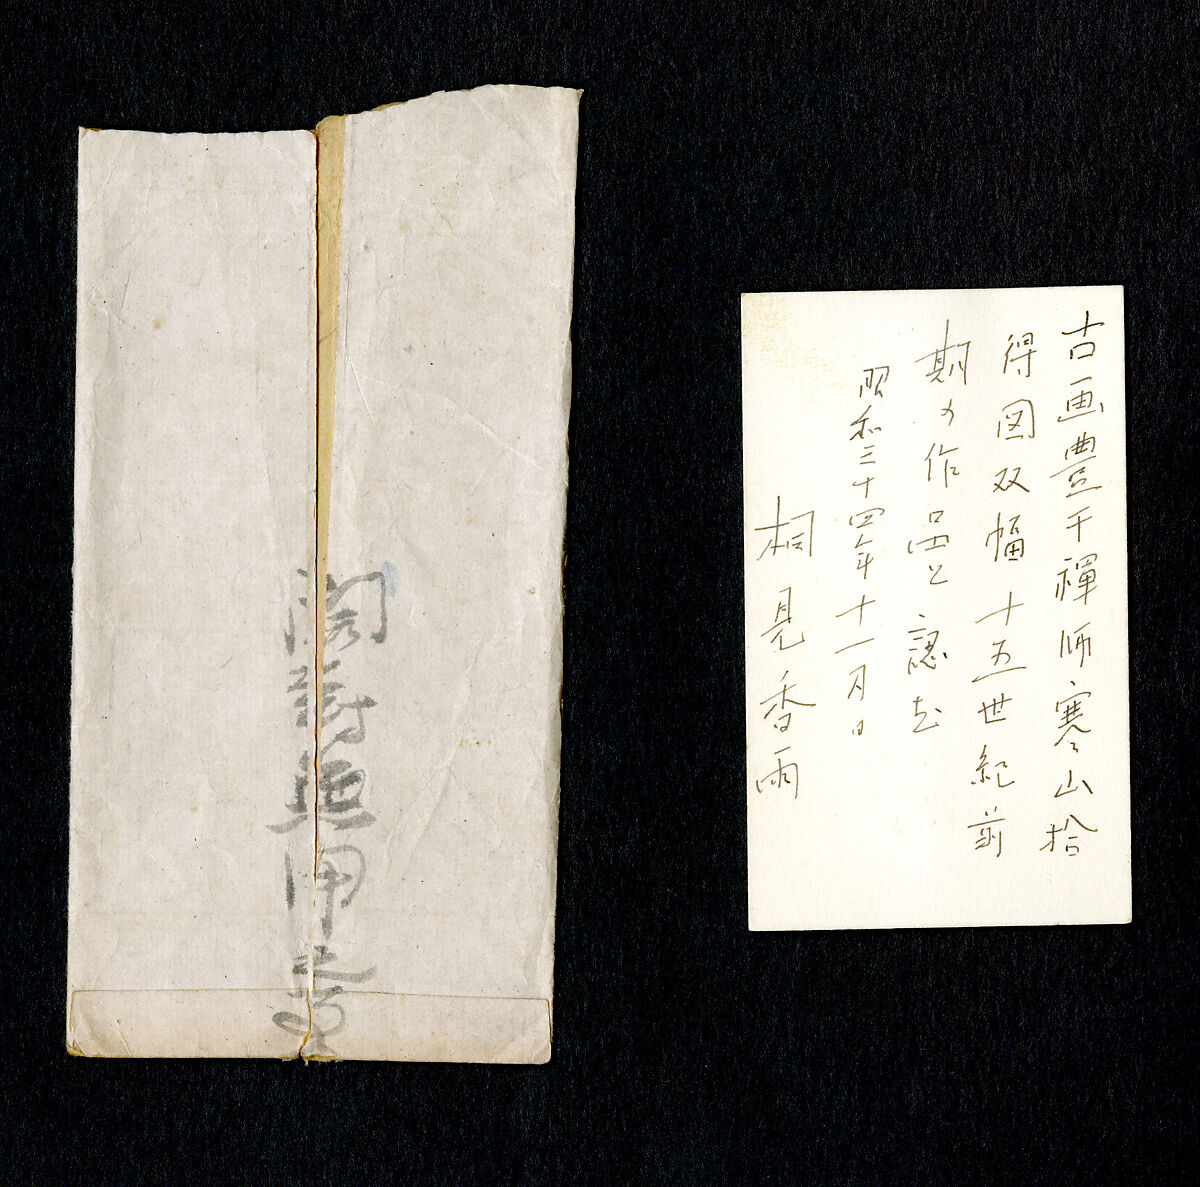 古画豊干禅師寒山拾
得図双幅 十五世紀前
期の作品と認む
昭和三十四年十一月日
相見香雨